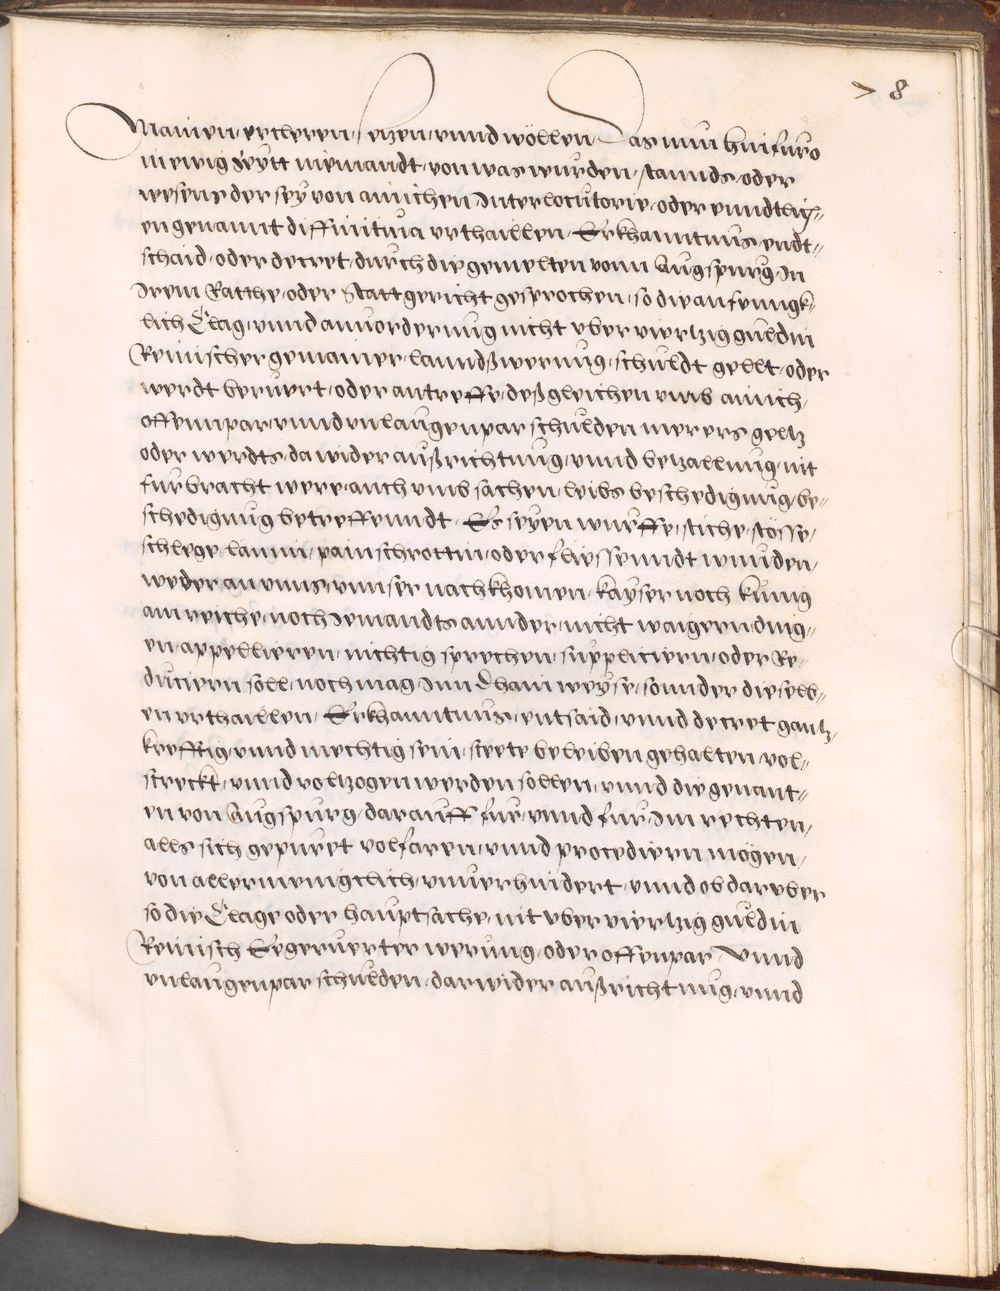 78
Mainen, ercleren, sezen, vnnd wöllen, Das nun hinfüro
in ewig Zeytt niemandt, von was wurden, stannds, oder
wesens der sey von ainichen Interlocutorie, oder enndtlich-
en genannt diffinitiua vrthaillen, Erkhanntnus, endt-
schaid, oder decret, durch die gemelten vonn Augspurg, In
Irem Ratthe, oder Stattgericht gesprochen, so die anfenngk-
lich Clag, vnnd anuorderung nicht vber viertzig guldin
Reinischer gemainer lanndßwerung, schuldt gellt, oder
werdt beruert, oder antreffe, deßgleichen vmb ainich,
offennpar, vnnd vnlaugenpar schulden merers geltz
oder werdts, da wider außrichtung, vnnd bezallung, nit
furbracht were, auch vmb sachen, leibs beschedigung, be-
schedigung betreffenndt, Es seyen wurffe, stiche, stösse,
schlege, lämi, painschrottin, oder fliessenndt wunden,
weder an vnns, vnnser nachkhomen, kayser noch künig
am reiche, noch Jemandts annder, nicht waigern, ding-
en, appellieren, nichtig sprechen, suppliciern, oder Re-
duciern soll, noch mag, Inn khain weyse, sonnder dieselb-
en vrthaillen, Erkhanntnus, entschaid, vnnd decret gantz,
krefftig, vnnd mechtig sein, steete beleiben gehalten, vol-
streckt, vnnd volzogen werden sollen, vnnd die genant-
en von Augspurg, darauff fur, vnnd fur, Im rechten,
alls sich gepuret volfaren, vnnd procediern mögen,
von allermenigclich, vnuerhindert, vnnd ob daruber
so die Clage oder hauptsache, nit vber viertzig guldin
Reinisch Eegeruerter werung, oder offenpar, Vnnd
vnlaugenpar schulden, darwider außrichtung, vnnd